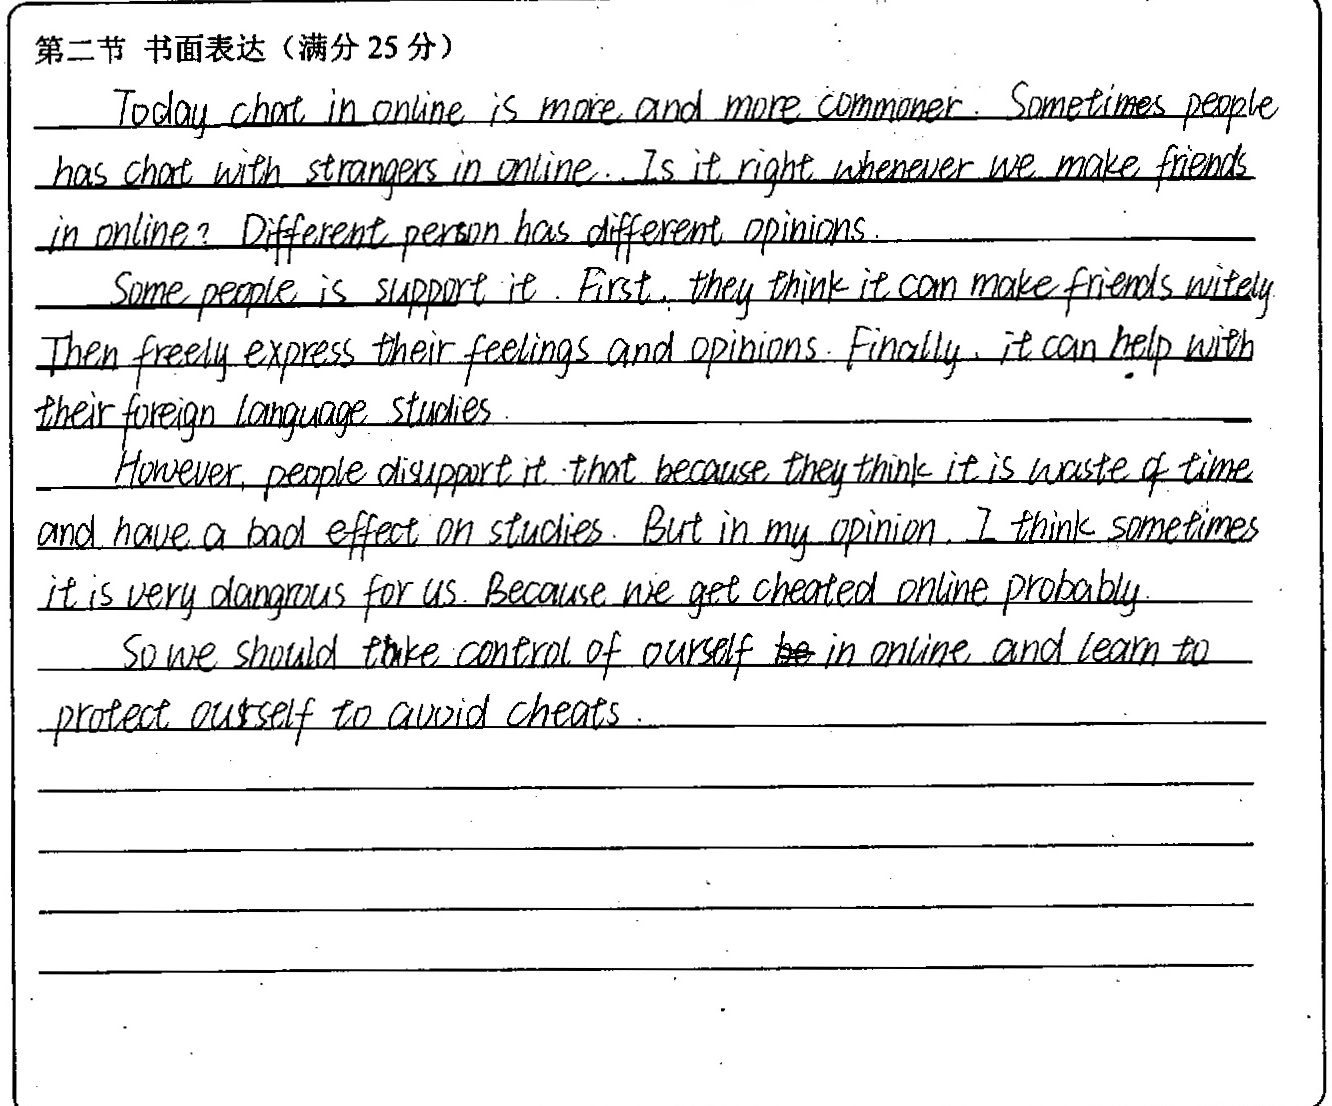 第二节 书面表达（满分 25 分）
Today chat in online is more and more commoner. Sometimes people
has chat with strangers in online. Is it right whenever we make friends
in online? Different person has different opinions.
Some people is support it. First, they think it can make friends witely
Then freely express their feelings and opinions. Finally, it can help with
their foreign language studies.
However, people disupport it that because they think it is waste of time
and have a bad effect on studies. But in my opinion, I think sometimes
it is very dangrous for us. Because we get cheated online probably.
So we should take control of ourself in online and learn to
protect ourself to avoid cheats.